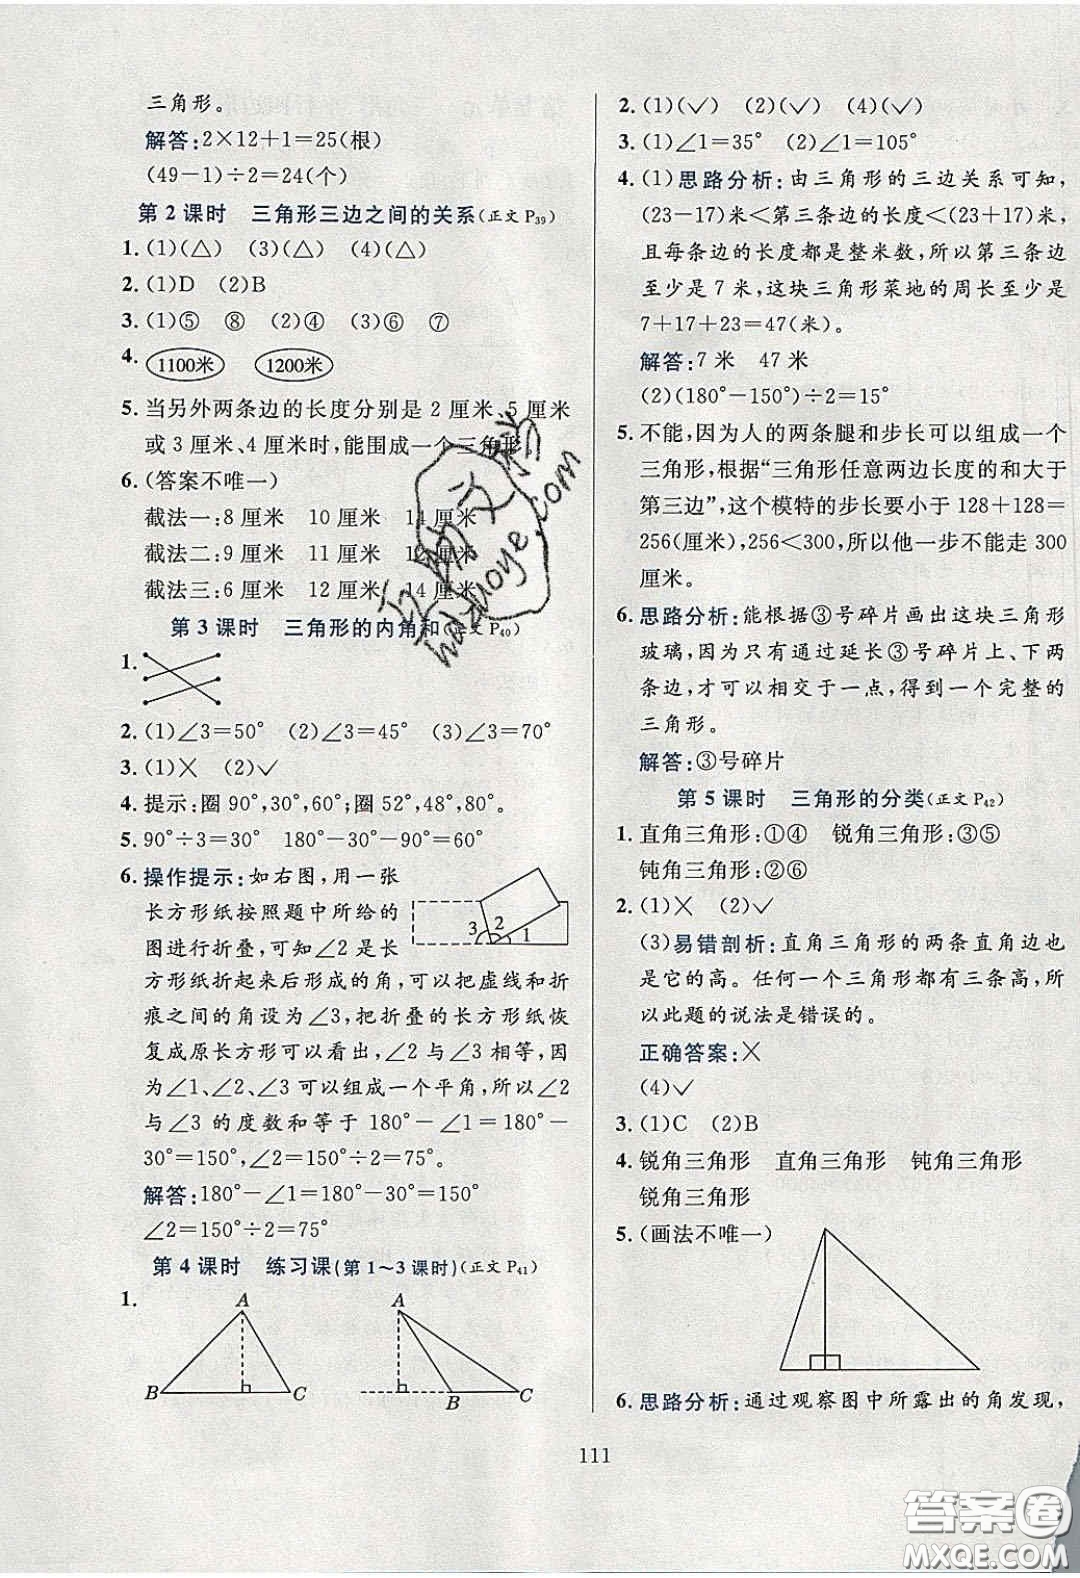 三角形。
解答:2×12+1=25(根)
(49-1)÷2=24(个)
第2课时　三角形三边之间的关系(正文P39)
1. (1)(△)　(3)(△)　(4)(△)
2. (1)D　(2)B
3. (1)⑤　⑧　(2)④　(3)⑥　⑦
4. 1100米　1200米
5. 当另外两条边的长度分别是2厘米、5厘米
或3厘米、4厘米时,能围成一个三角形。
6. (答案不唯一)
截法一:8厘米　10厘米　14厘米
截法二:9厘米　11厘米　12厘米
截法三:6厘米　12厘米　14厘米
第3课时　三角形的内角和(正文P40)
1.
2. (1)∠3=50°　(2)∠3=45°　(3)∠3=70°
3. (1)×　(2)✓
4. 提示:圈90°,30°,60°;圈52°,48°,80°。
5. 90°÷3=30°　180°-30°-90°=60°
6. 操作提示:如右图,用一张
长方形纸按照题中所给的
图进行折叠,可知∠2是长
方形纸折起来后形成的角,可以把虚线和折
痕之间的角设为∠3,把折叠的长方形纸恢
复成原长方形可以看出,∠2与∠3相等,因
为∠1、∠2、∠3可以组成一个平角,所以∠2
与∠3的度数和等于180°-∠1=180°-
30°=150°,∠2=150°÷2=75°。
3 2 1
解答:180°-∠1=180°-30°=150°
∠2=150°÷2=75°
第4课时　练习课(第1~3课时)(正文P41)
1.
A　A
B　C　B　C
2. (1)(✓)　(2)(✓)　(4)(✓)
3. (1)∠1=35°　(2)∠1=75°
4. (1)思路分析:由三角形的三边关系可知,
(23-17)米<第三条边的长度<(23+17)米,
且每条边的长度都是整米数,所以第三条边
至少是7米,这块三角形菜地的周长至少是
7+17+23=47(米)。
解答:7米　47米
(2)(180°-150°)÷2=15°
5. 不能,因为人的两条腿和步长可以组成一个
三角形,根据“三角形任意两边长度的和大于
第三边”,这个模特的步长要小于128+128=
256(厘米),256<300,所以他一步不能走300
厘米。
6. 思路分析:能根据③号碎片画出这块三角形
玻璃,因为只有通过延长③号碎片上、下两
条边,才可以相交于一点,得到一个完整的
三角形。
解答:③号碎片
第5课时　三角形的分类(正文P42)
1. 直角三角形:①④　锐角三角形:③⑤
钝角三角形:②⑥
2. (1)×　(2)✓
(3)易错剖析:直角三角形的两条直角边也
是它的高。任何一个三角形都有三条高,所
以此题的说法是错误的。
正确答案:×
(4)✓
3. (1)C　(2)B
4. 锐角三角形　直角三角形　钝角三角形
锐角三角形
5. (画法不唯一)
6. 思路分析:通过观察图中所露出的角发现,
111
互助文档
hdzuoye.com
答案圈
MXQE.COM